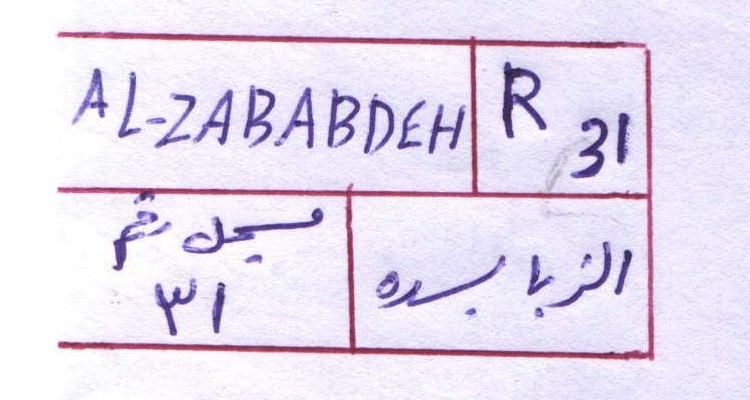 AL-ZABABDEH
R 31
الزبابده
مسجل رقم
٣١